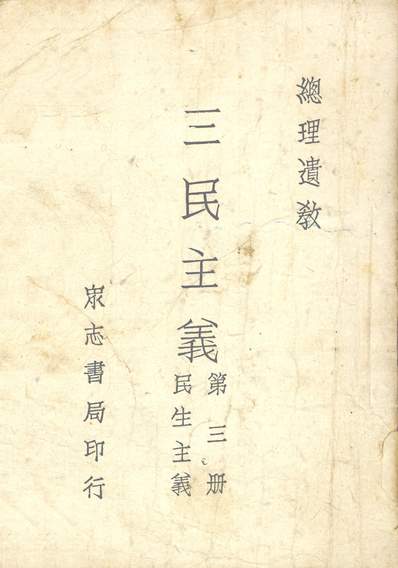 總理遺教
三民主義
第三册
民生主義
眾志書局印行